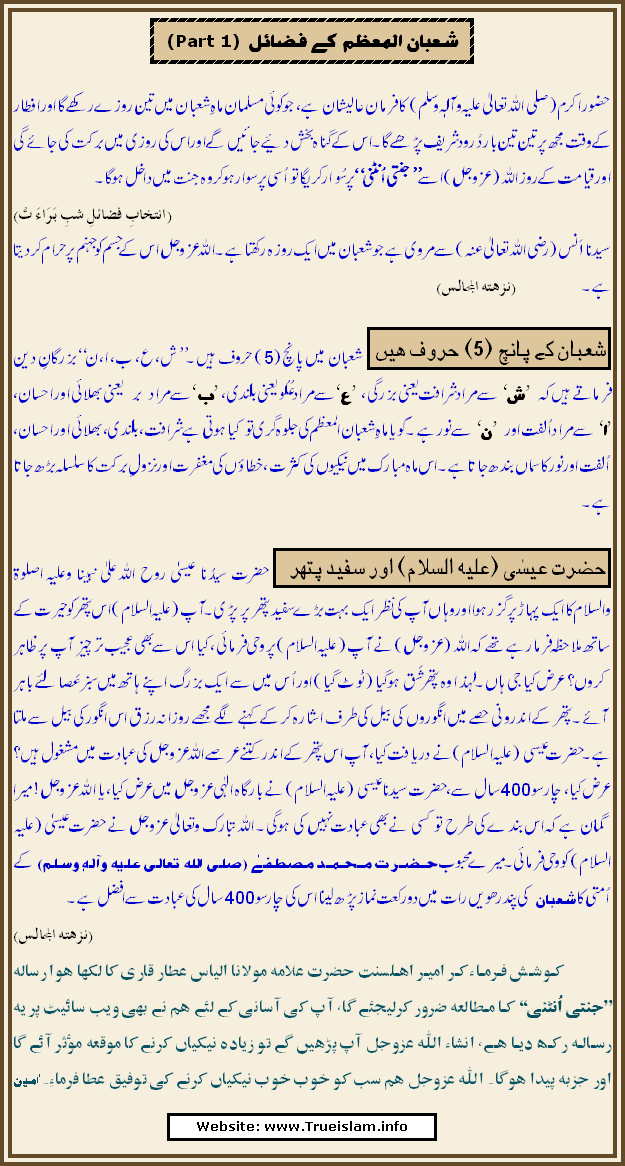 شعبان المعظم کے فضائل (Part 1)
حضور اکرم (صلی اللہ تعالیٰ علیہ وآلہٖ وسلم) کا فرمان عالیشان ہے، جو کوئی مسلمان ماہِ شعبان میں تین روزے رکھے گا اور افطار
کے وقت مجھ پر تین تین بار دُرود شریف پڑھے گا۔ اس کے گناہ بخش دیئے جائیں گے اور اس کی روزی میں برکت کی جائے گی
اور قیامت کے روز اللہ (عزوجل) اسے ”جنتی اُنٹنی“ پر سُوار کریگا تو اُسی پر سوار ہو کر وہ جنت میں داخل ہوگا۔
(انتخابِ فضائلِ شبِ بَرَاءَ تْ)
سیدنا اَنس (رضی اللہ تعالیٰ عنہ) سے مروی ہے جو شعبان میں ایک روزہ رکھتا ہے۔ اللہ عزوجل اس کے جسم کو جہنم پر حرام کر دیتا
ہے۔ (نزھتہ المجالس)
شعبان کے پانچ (5) حروف ھیں شعبان میں پانچ (5) حروف ہیں۔ ”ش، ع، ب، ا، ن“ بزرگانِ دین
فرماتے ہیں کہ ’ش‘ سے مراد شرافت یعنی بزرگی، ’ع‘ سے مراد عُلُو یعنی بلندی، ’ب‘ سے مراد بر یعنی بھلائی اور احسان،
’ا‘ سے مراد اُلفت اور ’ن‘ سے نور ہے۔ گویا ماہِ شعبان المعظم کی جلوہ گری تو کیا ہوتی ہے شرافت، بلندی، بھلائی اور احسان،
اُلفت اور نور کا سماں بندھ جاتا ہے۔ اس ماہ مبارک میں نیکیوں کی کثرت، خطاؤں کی مغفرت اور نزولِ برکت کا سلسلہ بڑھ جاتا
ہے۔
حضرت عیسٰی (علیہ السلام) اور سفید پتھر حضرت سیدُنا عیسیٰ روح اللہ علیٰ نبینا وعلیہ اصلوۃ
والسلام کا ایک پہاڑ پر گزر ہوا اور وہاں آپ کی نظر ایک بہت بڑے سفید پتھر پر پڑی۔ آپ (علیہ السلام) اس پتھر کو حیرت کے
ساتھ ملاحظہ فرما رہے تھے کہ اللہ (عزوجل) نے آپ (علیہ السلام) پر وحی فرمائی، کیا اس سے بھی عجیب تر چیز آپ پر ظاہر
کروں؟ عرض کیا جی ہاں۔ لہٰذا وہ پتھر شَق ہوگیا (ٹوٹ گیا) اور اُس میں سے ایک بزرگ اپنے ہاتھ میں سبز عَصا لئے باہر
آئے۔ پتھر کے اندرونی حصے میں انگوروں کی بیل کی طرف اشارہ کرکے کہنے لگے مجھے روزانہ رزق اس انگور کی بیل سے ملتا
ہے۔ حضرت عیسیٰ (علیہ السلام) نے دریافت کیا، آپ اس پتھر کے اندر کتنے عرصے اللہ عزوجل کی عبادت میں مشغول ہیں؟
عرض کیا، چار سو 400 سال سے، حضرت سیدنا عیسیٰ (علیہ السلام) نے بارگاہ الٰہی عزوجل میں عرض کیا، یا اللہ عزوجل! میرا
گمان ہے کہ اس بندے کی طرح تو کسی نے بھی عبادت نہیں کی ہوگی۔ اللہ تبارک وتعالیٰ عزوجل نے حضرت عیسیٰ (علیہ
السلام) کو وحی فرمائی۔ میرے محبوب حضرت محمد مصطفےٰ (صلی اللہ تعالی علیہ وآلہٖ وسلم) کے
اُمتی کا شعبان کی پندرھویں رات میں دو رکعت نماز پڑھ لینا اس کی چار سو 400 سال کی عبادت سے افضل ہے۔
(نزھتہ المجالس)
کوشش فرماء کر امیر اھلسنت حضرت علامہ مولانا الیاس عطار قاری کا لکھا ھوا رسالہ
”جنتی اُنٹنی“ کا مطالعہ ضرور کرلیجئے گا، آپ کی آسانی کے لئے ھم نے بھی ویب سائیٹ پر یہ
رسالہ رکھ دیا ھے، انشاء اللہ عزوجل آپ پڑھیں گے تو زیادہ نیکیاں کرنے کا موقعہ مؤثر آئے گا
اور جزبہ پیدا ھوگا۔ اللہ عزوجل ھم سب کو خوب خوب نیکیاں کرنے کی توفیق عطا فرماءِ۔ امین
Website: www.Trueislam.info